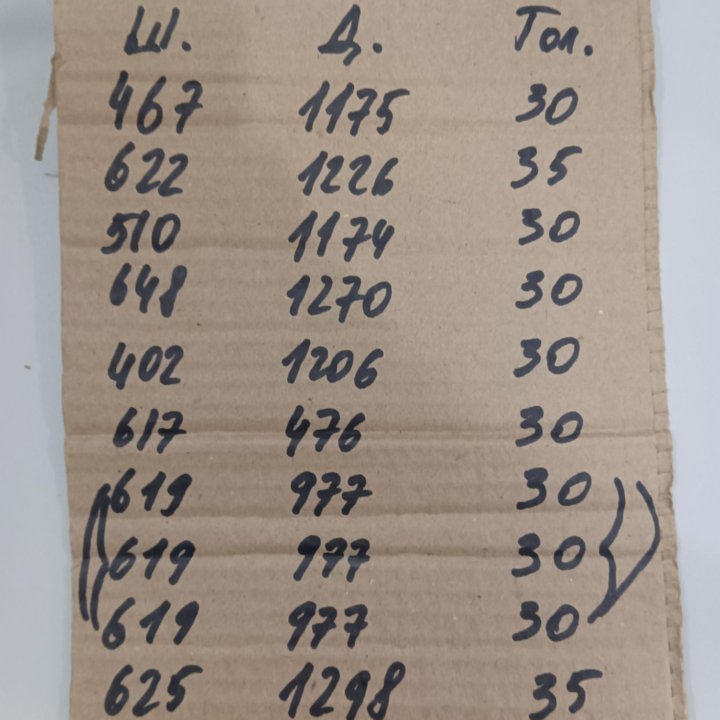 Ш. Д. Тол.
467 1175 30
622 1226 35
510 1174 30
648 1270 30
402 1206 30
617 476 30
619 977 30
619 977 30
619 977 30
625 1298 35